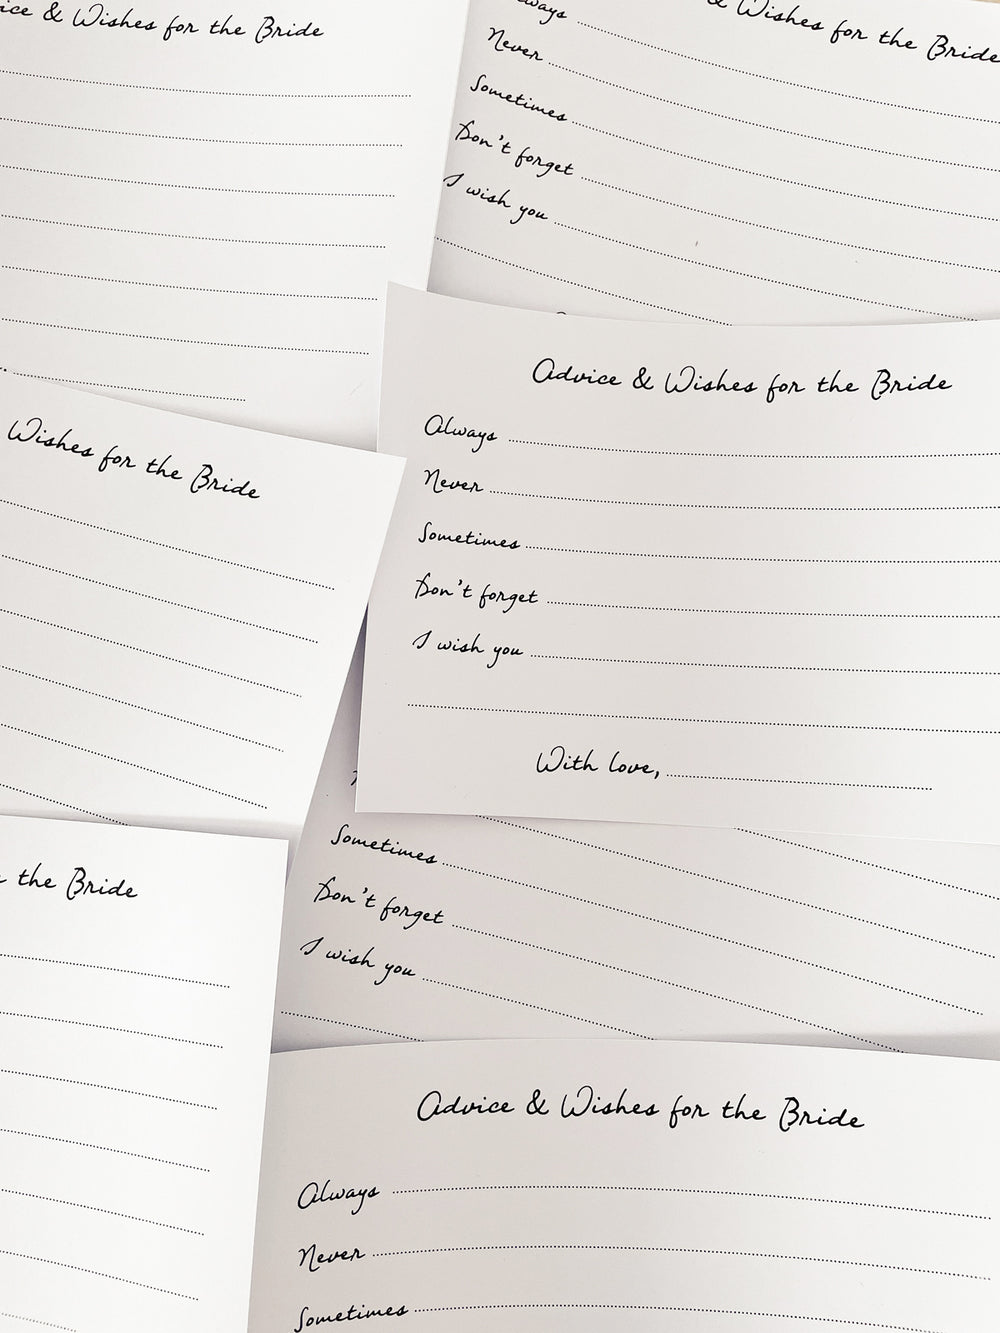 & Wishes for the Bride
& Wishes for the Bride
Never
Sometimes
Don't forget
I wish you
Advice & Wishes for the Bride
Always
Never
Sometimes
Don't forget
I wish you
With love,
Wishes for the Bride
Sometimes
Don't forget
I wish you
the Bride
Advice & Wishes for the Bride
Always
Never
Sometimes